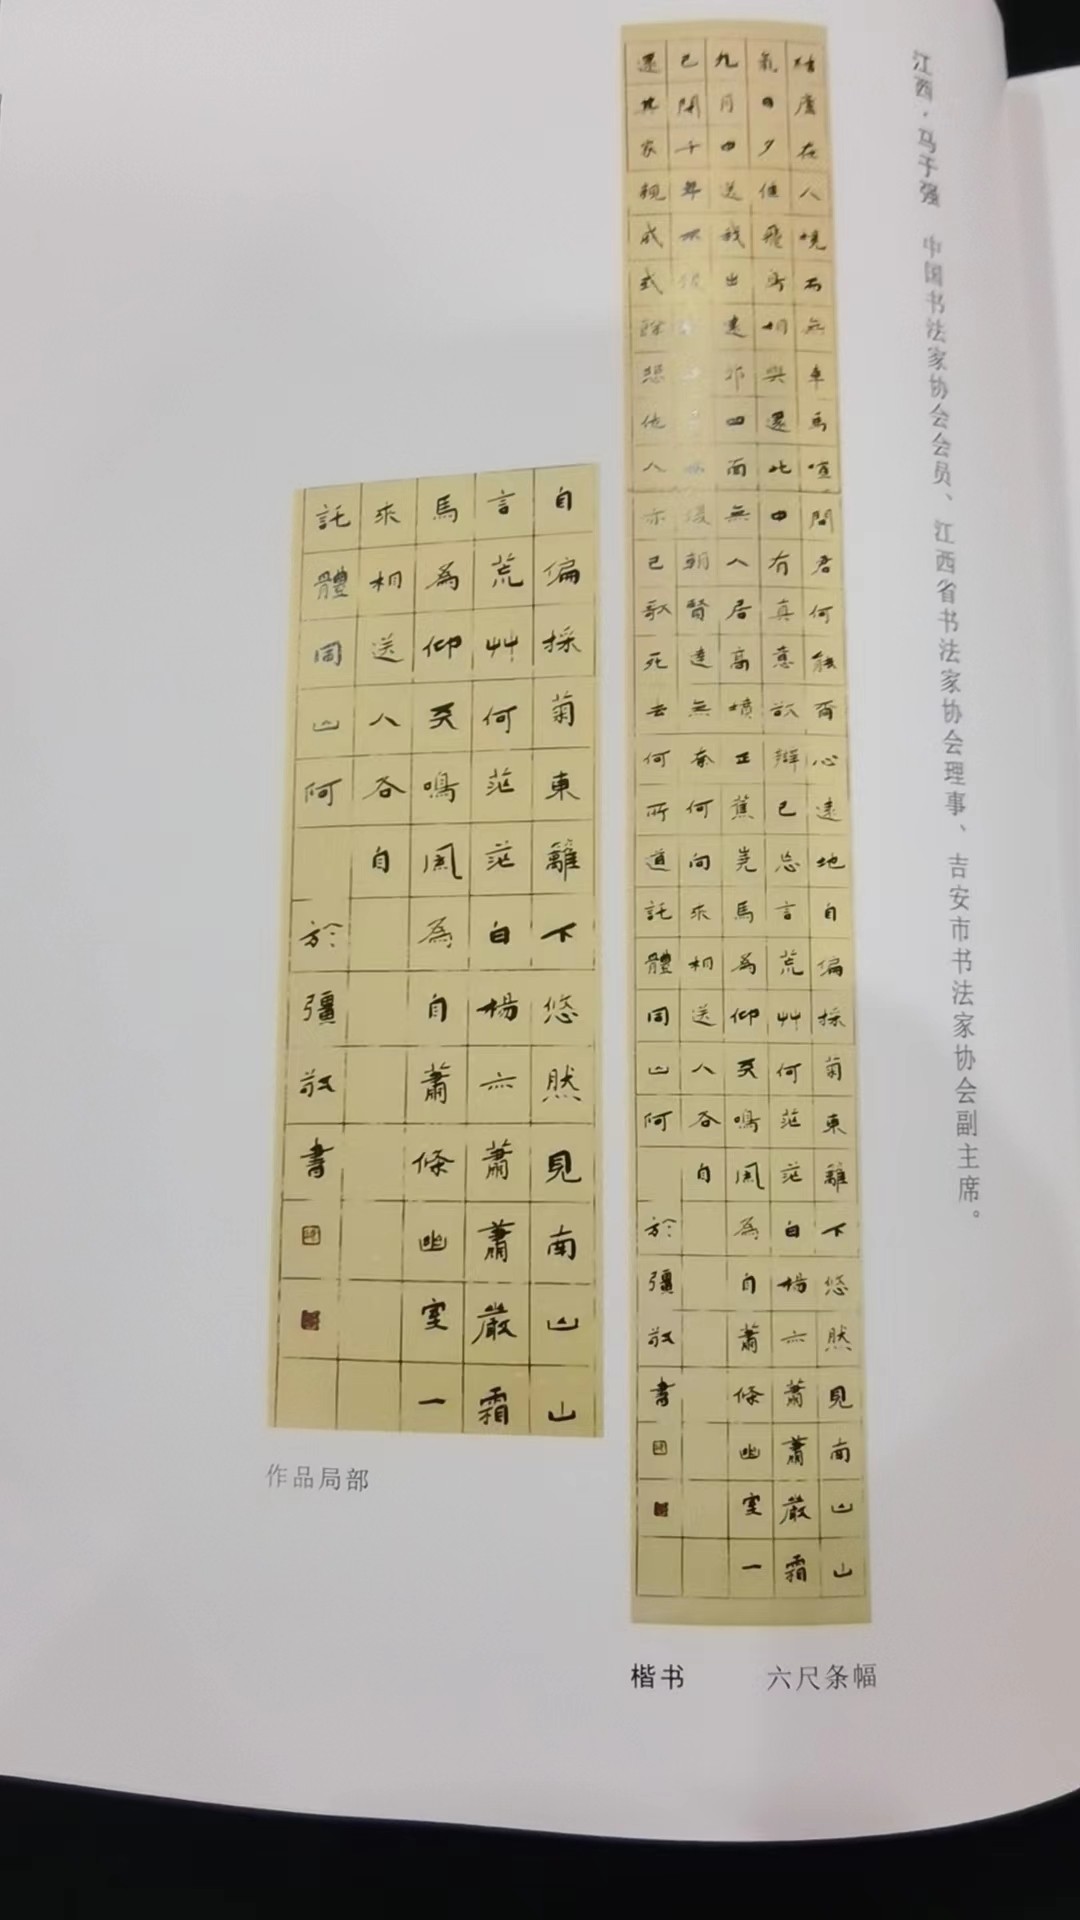 江西·马于强 中国书法家协会会员、江西省书法家协会理事、吉安市书法家协会副主席。
結廬在人境而無車馬喧問君何能爾心遠地自偏採菊東籬下悠然見南山山
氣日夕佳飛鳥相與還此中有真意欲辯已忘言荒艸何茫茫白楊亦蕭蕭嚴霜
九月中送我出遠郊四面無人居高墳正蕉嶤馬為仰天鳴風為自蕭條幽室一
已閉千年不復朝賢達無奈何向來相送人各自
還其家親戚或餘悲他人亦已歌死去何所道託體同山阿 於彊敬書
楷书 六尺条幅
自偏採菊東籬下悠然見南山山
言荒艸何茫茫白楊亦蕭蕭嚴霜
馬為仰天鳴風為自蕭條幽室一
來相送人各自
託體同山阿 於彊敬書
作品局部